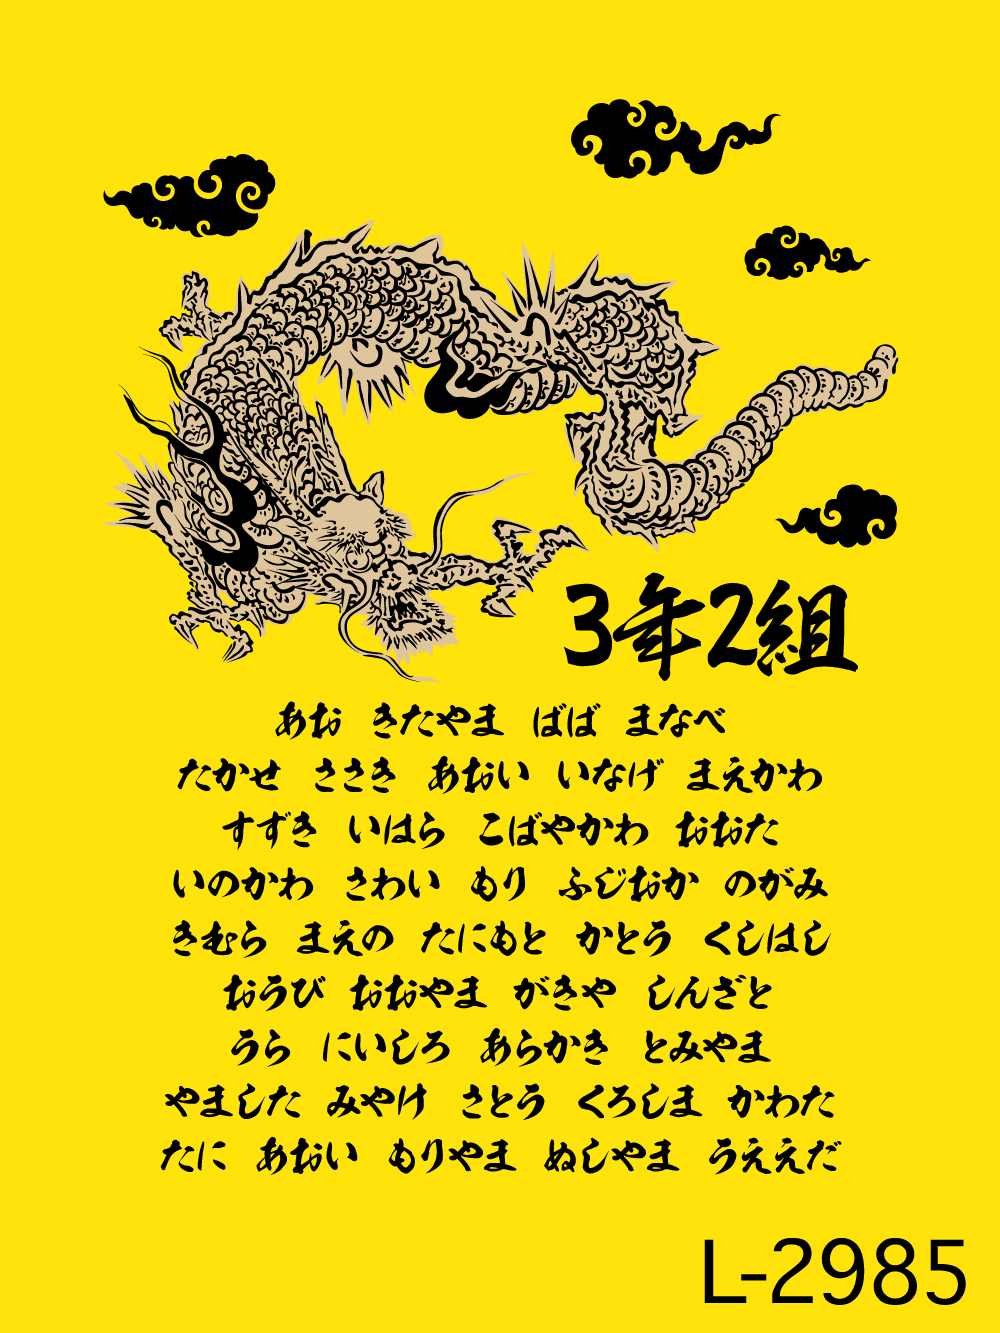 3年2組
あお きたやま ばば まなべ
たかせ ささき あおい いなげ まえかわ
すずき いはら こばやかわ おおた
いのかわ さわい もり ふじおか のがみ
きむら まえの たにもと かとう くしはし
おうび おおやま がきや しんざと
うら にいしろ あらかき とみやま
やました みやけ さとう くろしま かわた
たに あおい もりやま ぬしやま うええだ
L-2985